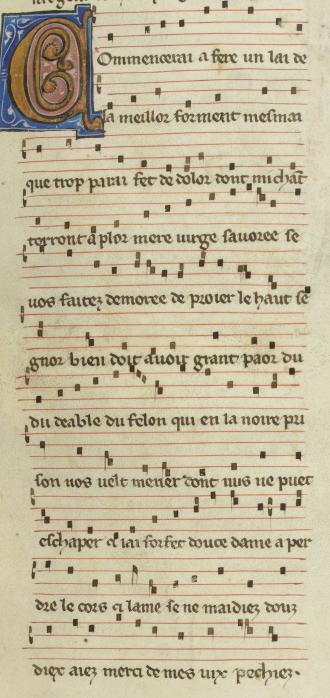 Commencerai a fere un lai de
la meillor forment mesmai
que trop parai fet de dolor dont mi chāt
terront a plor mere uirge sauoree se
uos faitez demoree de proier le haut se
gnor bien doit auoir grant paor du
du deable du felon qui en la noire pri
son nos uelt mener dont nus ne puet
eschaper ⁊ iai forfet douce dame a per
dre le cors ⁊ lame se ne maidiez douz
diex aiez merci de mes uix pechiez.